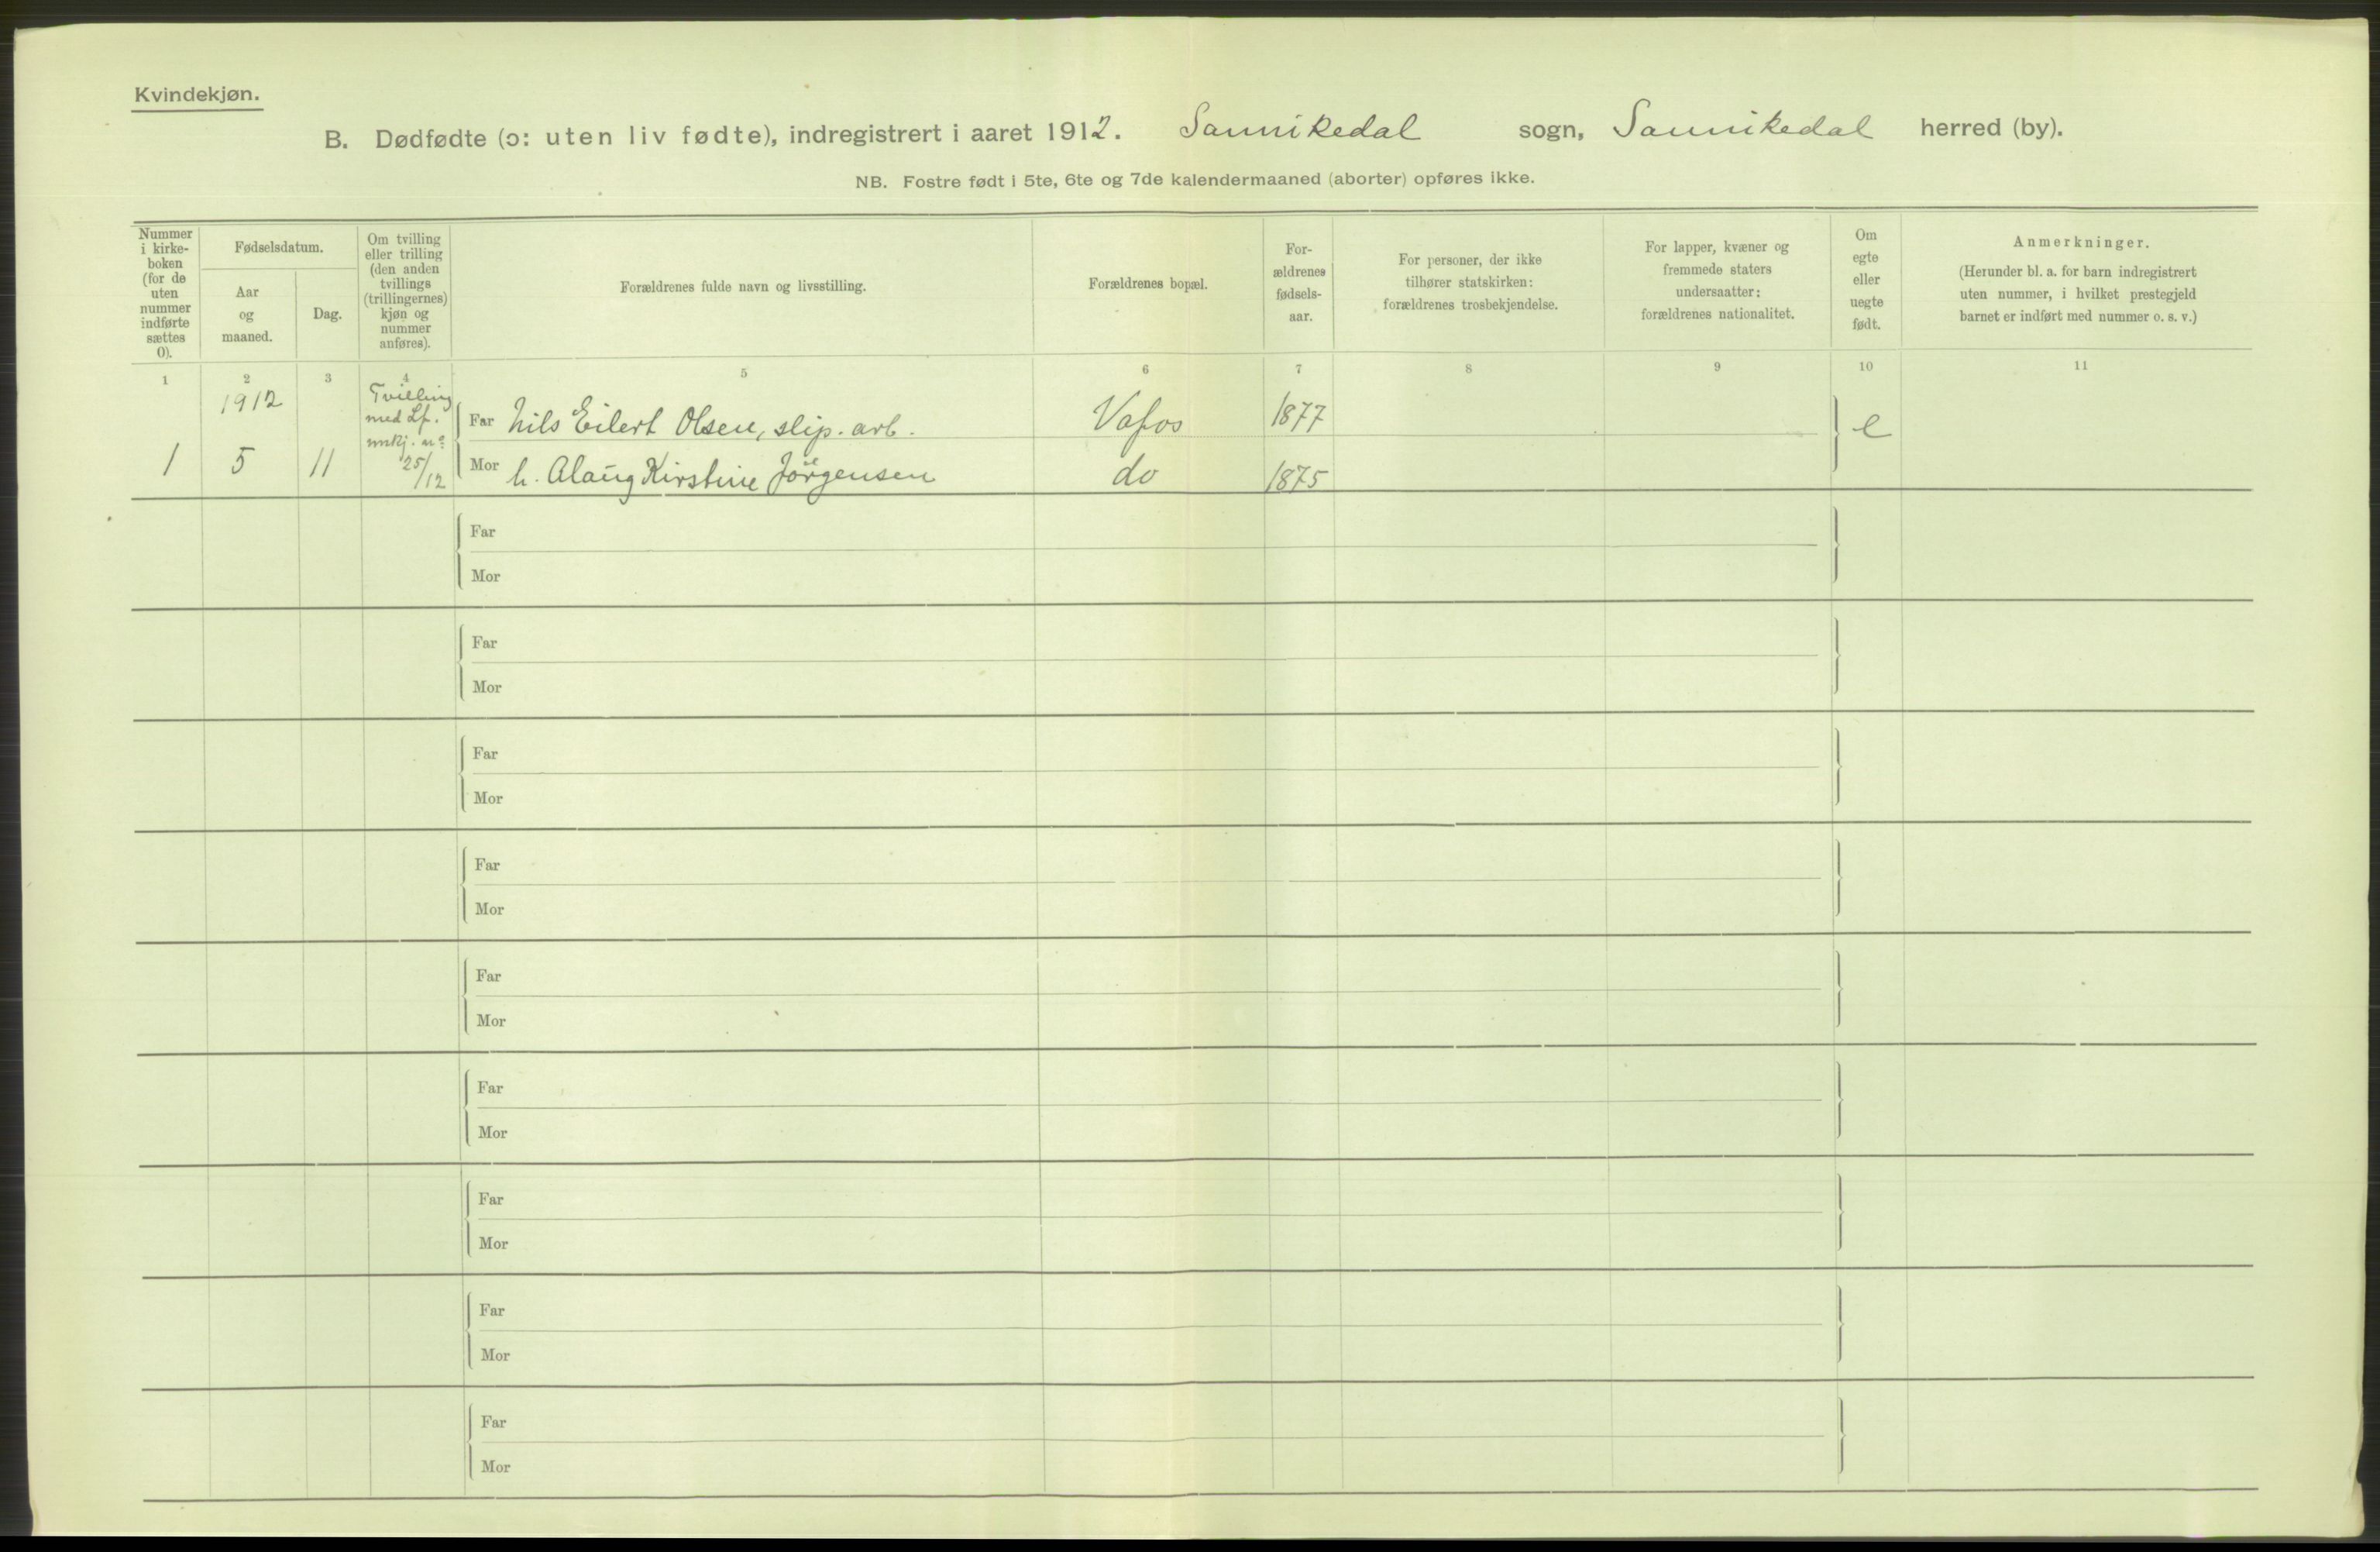 Kvindekjøn.
B. Dødfødte (ɔ: uten liv fødte), indregistrert i aaret 1912. Sannikedal sogn, Sannikedal herred (by).
NB. Fostre født i 5te, 6te og 7de kalendermaaned (aborter) opføres ikke.
Nummer
i kirke-
boken
(for de
uten
nummer
indførte
sættes
0).
Fødselsdatum.
Aar
og
maaned.
Dag.
Om tvilling
eller trilling
(den anden
tvillings
(trillingernes)
kjøn og
nummer
anføres).
Forældrenes fulde navn og livsstilling.
Forældrenes bopæl.
For-
ældrenes
fødsels-
aar.
For personer, der ikke
tilhører statskirken:
forældrenes trosbekjendelse.
For lapper, kvæner og
fremmede staters
undersaatter:
forældrenes nationalitet.
Om
egte
eller
uegte
født.
Anmerkninger.
(Herunder bl. a. for barn indregistrert
uten nummer, i hvilket prestegjeld
barnet er indført med nummer o. s. v.)
1 2 3 4 5 6 7 8 9 10 11
1912
Tvilling
med Lf.
mkj. nº
25/12
1 5 11
Far Nils Eilert Olsen, slip. arb. Vafos 1877 e
Mor h. Alaug Kirstine Jörgensen do 1875
Far
Mor
Far
Mor
Far
Mor
Far
Mor
Far
Mor
Far
Mor
Far
Mor
Far
Mor
Far
Mor